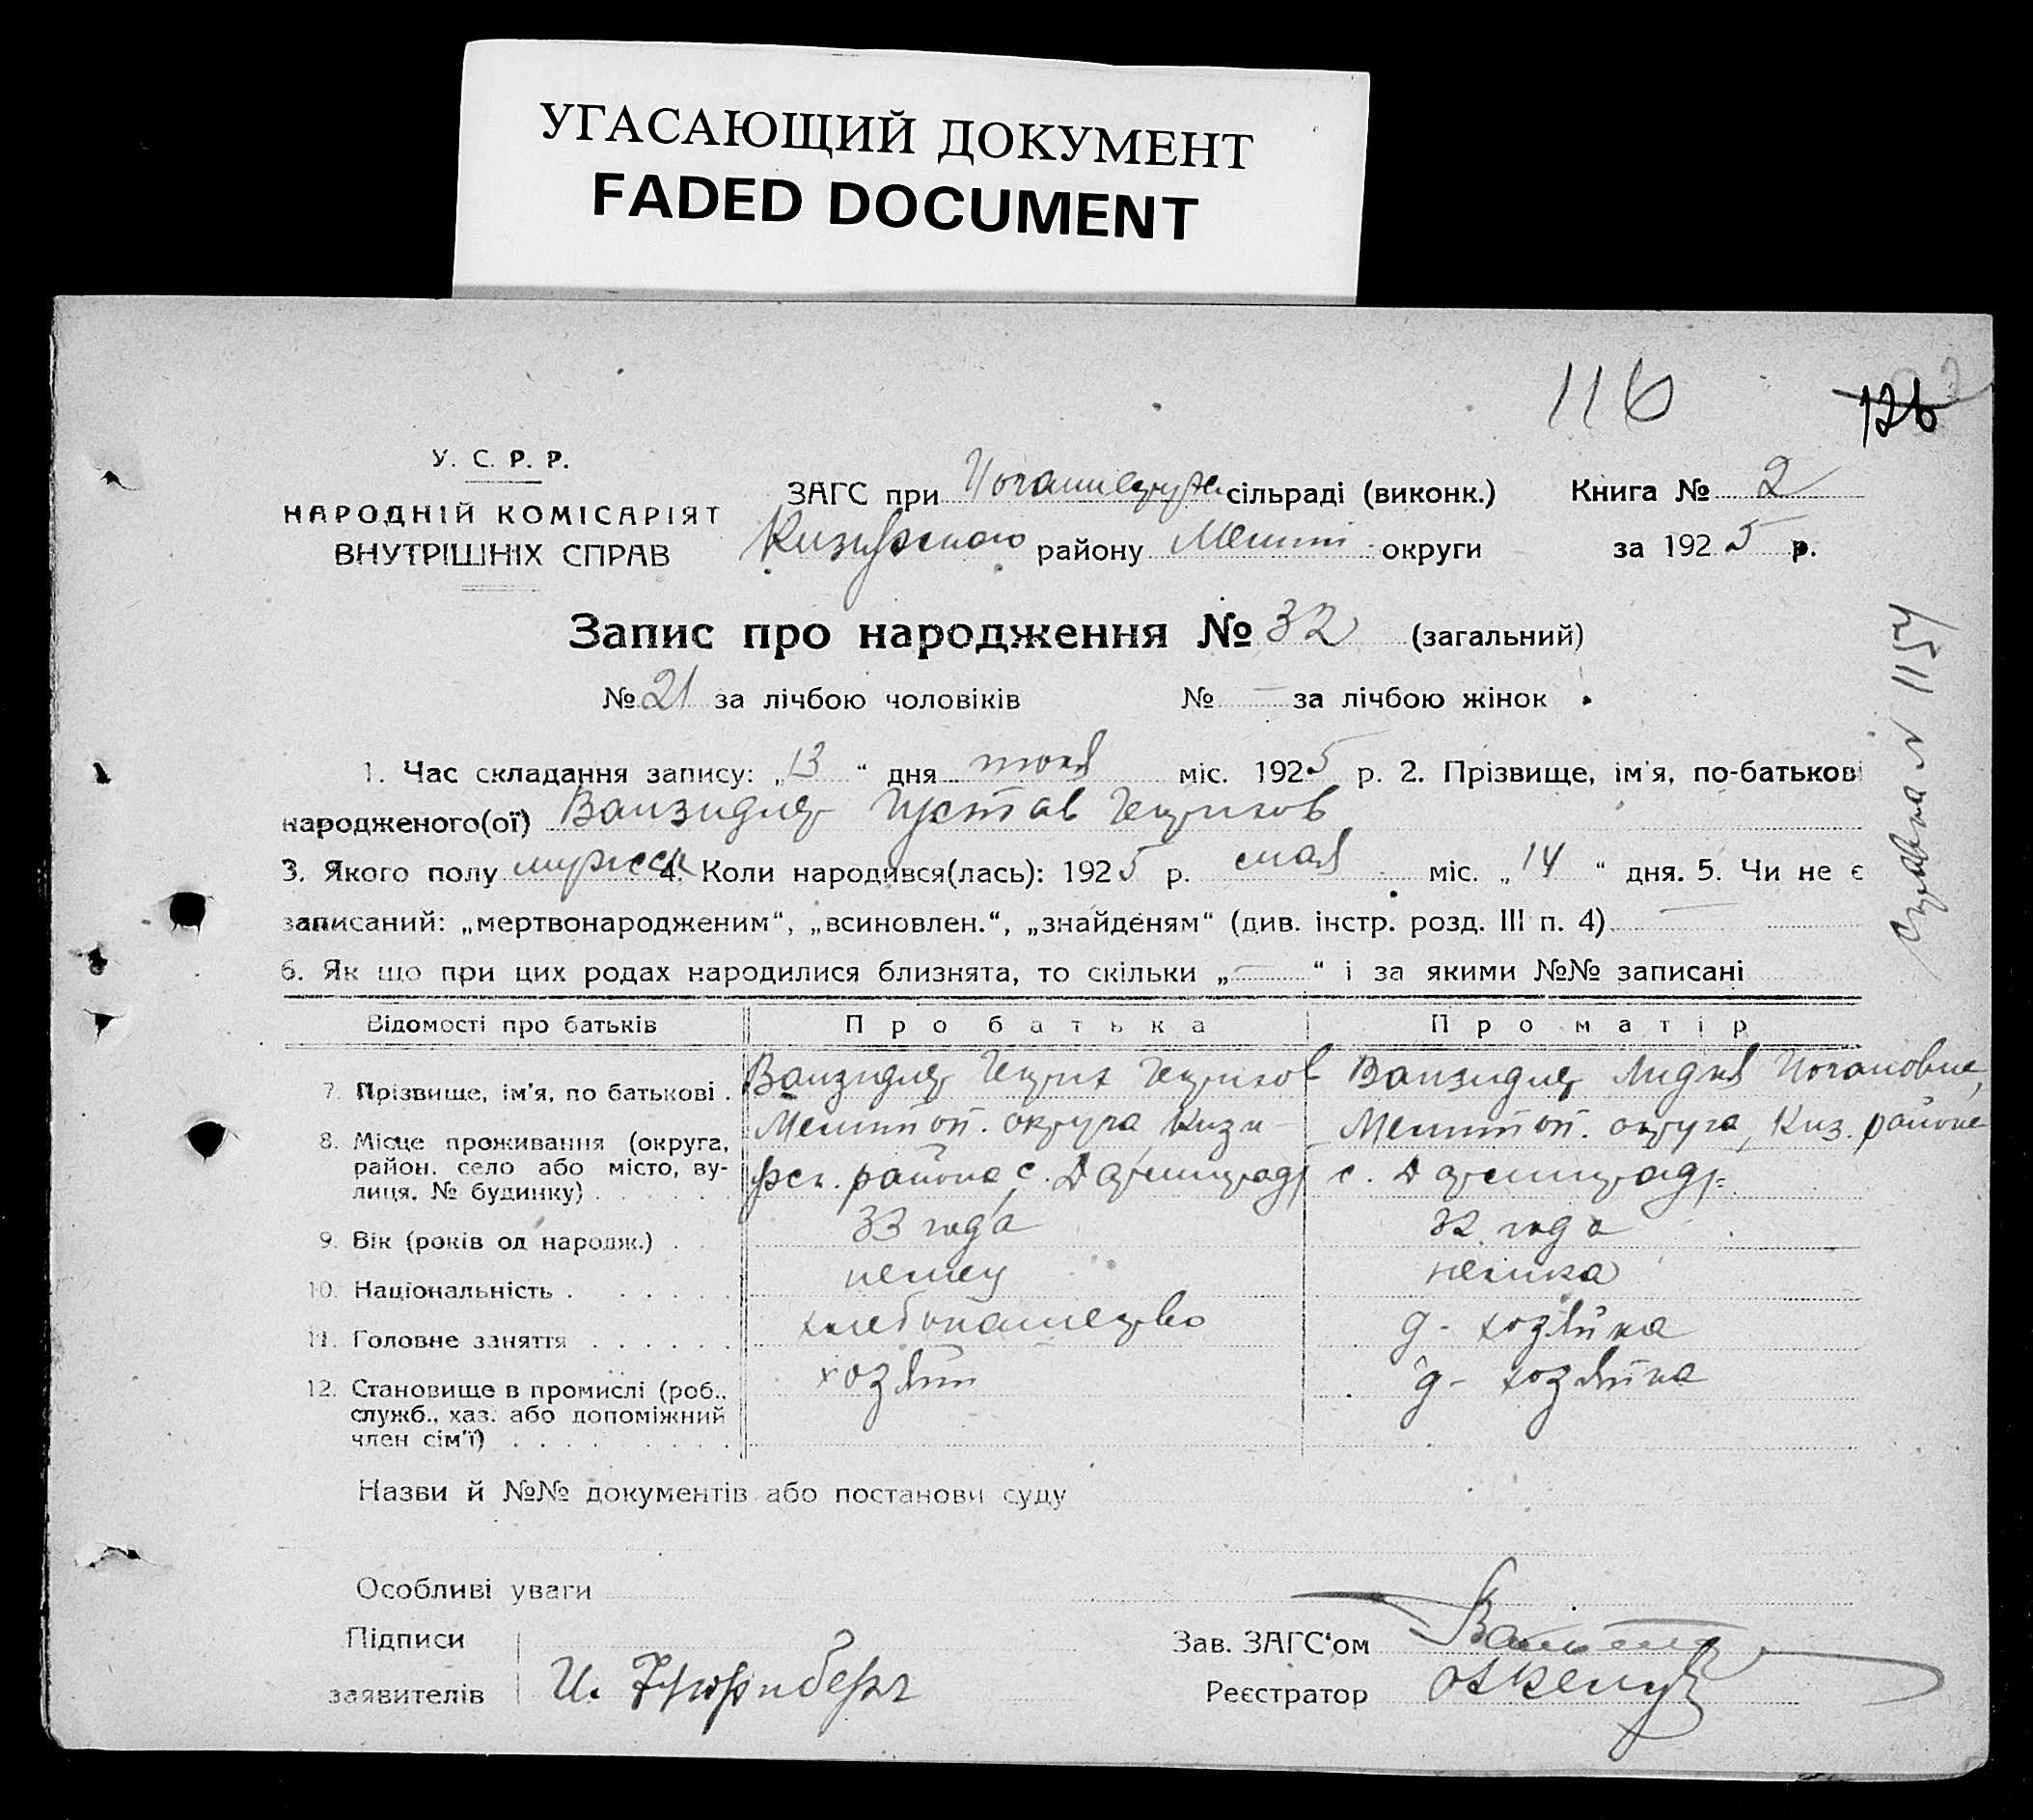 УГАСАЮЩИЙ ДОКУМЕНТ
FADED DOCUMENT
116
126
У. С. Р. Р.
НАРОДНІЙ КОМІСАРІЯТ
ВНУТРІШНІХ СПРАВ
ЗАГС при сільраді (виконк.)
району Мелит округи
Книга № 2
за 1925 р.
Запис про народження № 32 (загальний)
№ 21 за лічбою чоловіків № — за лічбою жінок
1. Час складання запису: „13“ дня міс. 1925 р. 2. Прізвище, ім'я, по-батькові
народженого(ої) Ванзидлер Густав Генрихов
3. Якого полу мужеск 4. Коли народився(лась): 1925 р. мая міс. „14“ дня. 5. Чи не є
записаний: „мертвонародженим“, „всиновлен.“, „знайденям“ (див. інстр. розд. III п. 4) —
6. Як що при цих родах народилися близнята, то скільки „—“ і за якими №№ записані
Відомості про батьків
Про батька
Про матір
7. Прізвище, ім'я, по батькові .
Ванзидлер Генрих Генрихов
Ванзидлер Лидия Иогановна,
8. Місце проживання (округа,
район, село або місто, ву-
лиця, № будинку)
Мелитоп. округа, Кизи-
рск. района с. Дармштадт
Мелитоп. округа, Киз. района
с. Дармштадт
9. Вік (років од народж.)
33 года
32 года
10. Національність
немец
немка
11. Головне заняття
хлебопашество
д- хозяйка
12. Становище в промислі (роб.,
служб., хаз. або допоміжний
член сім'ї)
хозяин
д- хозяйка
Назви й №№ документів або постанови суду
Особливі уваги
Підписи
заявителів
И. Нюрнберг
Зав. ЗАГС'ом
Реєстратор
Справка № 1154